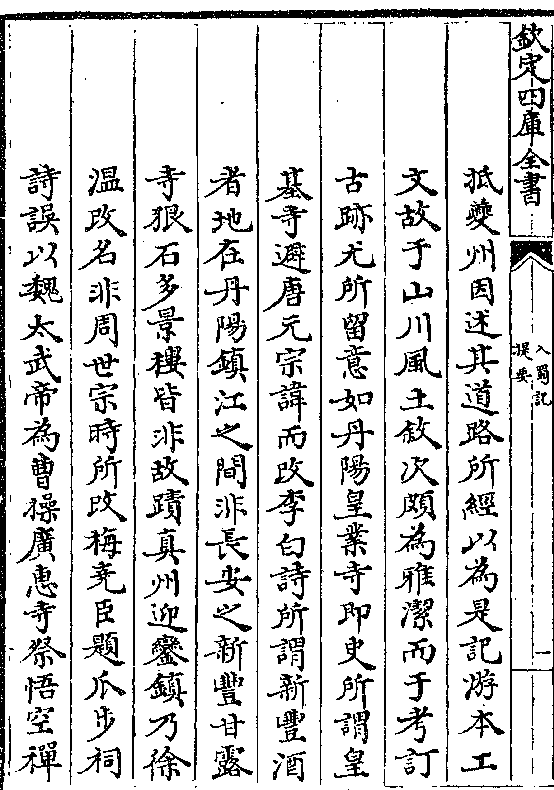 欽定四庫全書
入蜀記
提要
一
抵夔州因述其道路所經以為是記游本工
文故于山川風土敘次頗為雅潔而于考訂
古跡尤所留意如丹陽皇業寺即史所謂皇
基寺避唐元宗諱而改李白詩所謂新豐酒
者地在丹陽鎮江之間非長安之新豐甘露
寺狠石多景樓皆非故蹟真州迎鑾鎮乃徐
溫改名非周世宗時所改梅堯臣題瓜步祠
詩誤以魏太武帝為曹操廣惠寺祭悟空禪